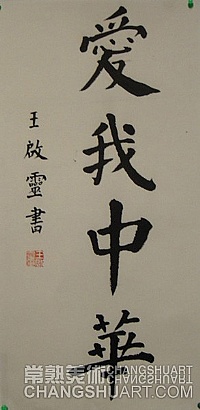 愛我中華
王啟靈書
常熟美術 CHANGSHUART